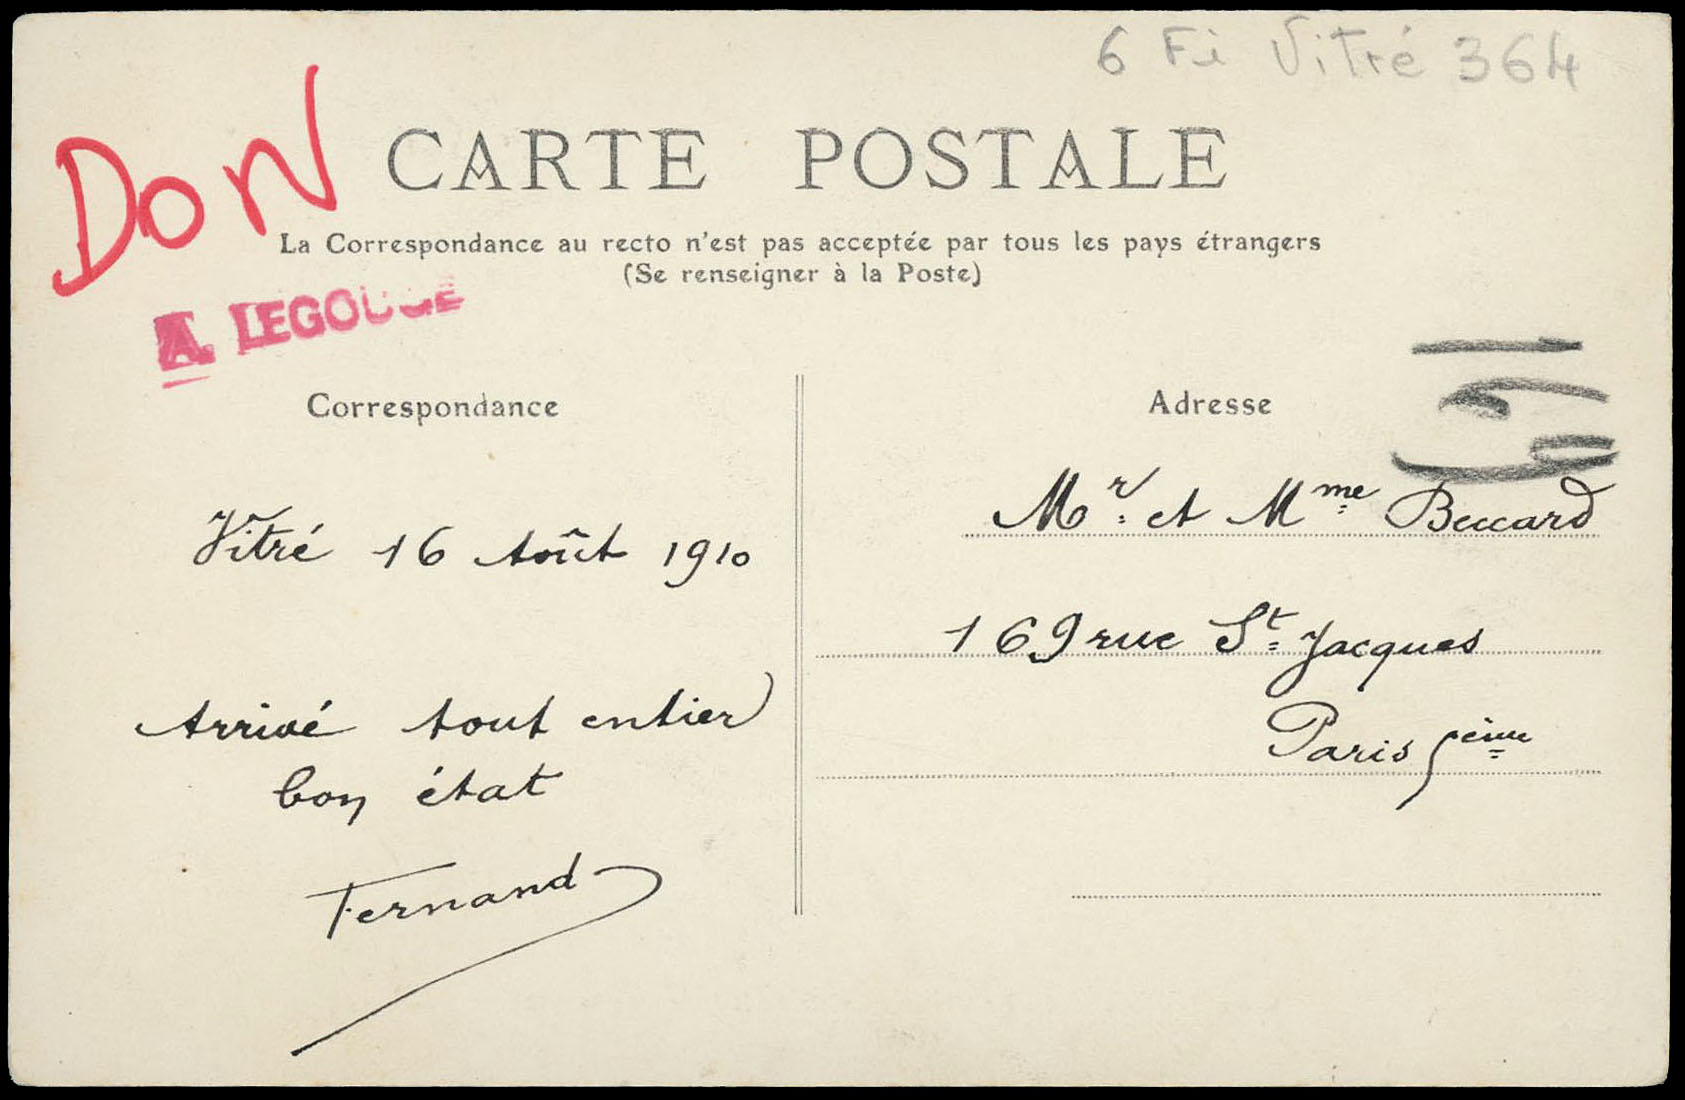 6 Fi Vitré 364
DON
CARTE POSTALE
La Correspondance au recto n'est pas acceptée par tous les pays étrangers
(Se renseigner à la Poste)
A.
Correspondance
Adresse
Vitré 16 Août 1910
Arrivé tout entier
bon état
Fernand
Mr. et Mme Beccard
169 rue St. Jacques
Paris 5ème